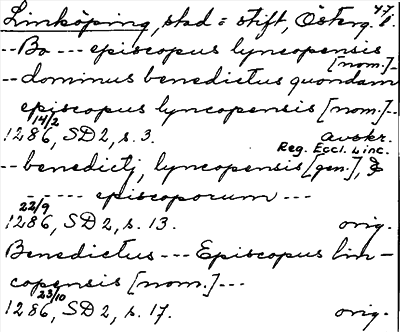 Linköping, stad = stift, Österg. l. 47
-- Bo --- episcopus lyncopensis [nom.] --
-- dominus benedictus quondam
episcopus lyncopensis [nom.] --
14/2
1286, SD 2, s. 3. avskr.
Reg. Eccl. Linc.
-- benedictj, lyncopensis [gen.], &
----- episcoporum ---
22/9
1286, SD 2, s. 13. orig.
Benedictus --- Episcopus lin-
copensis [nom.] ---
23/10
1286, SD 2, s. 17. orig.